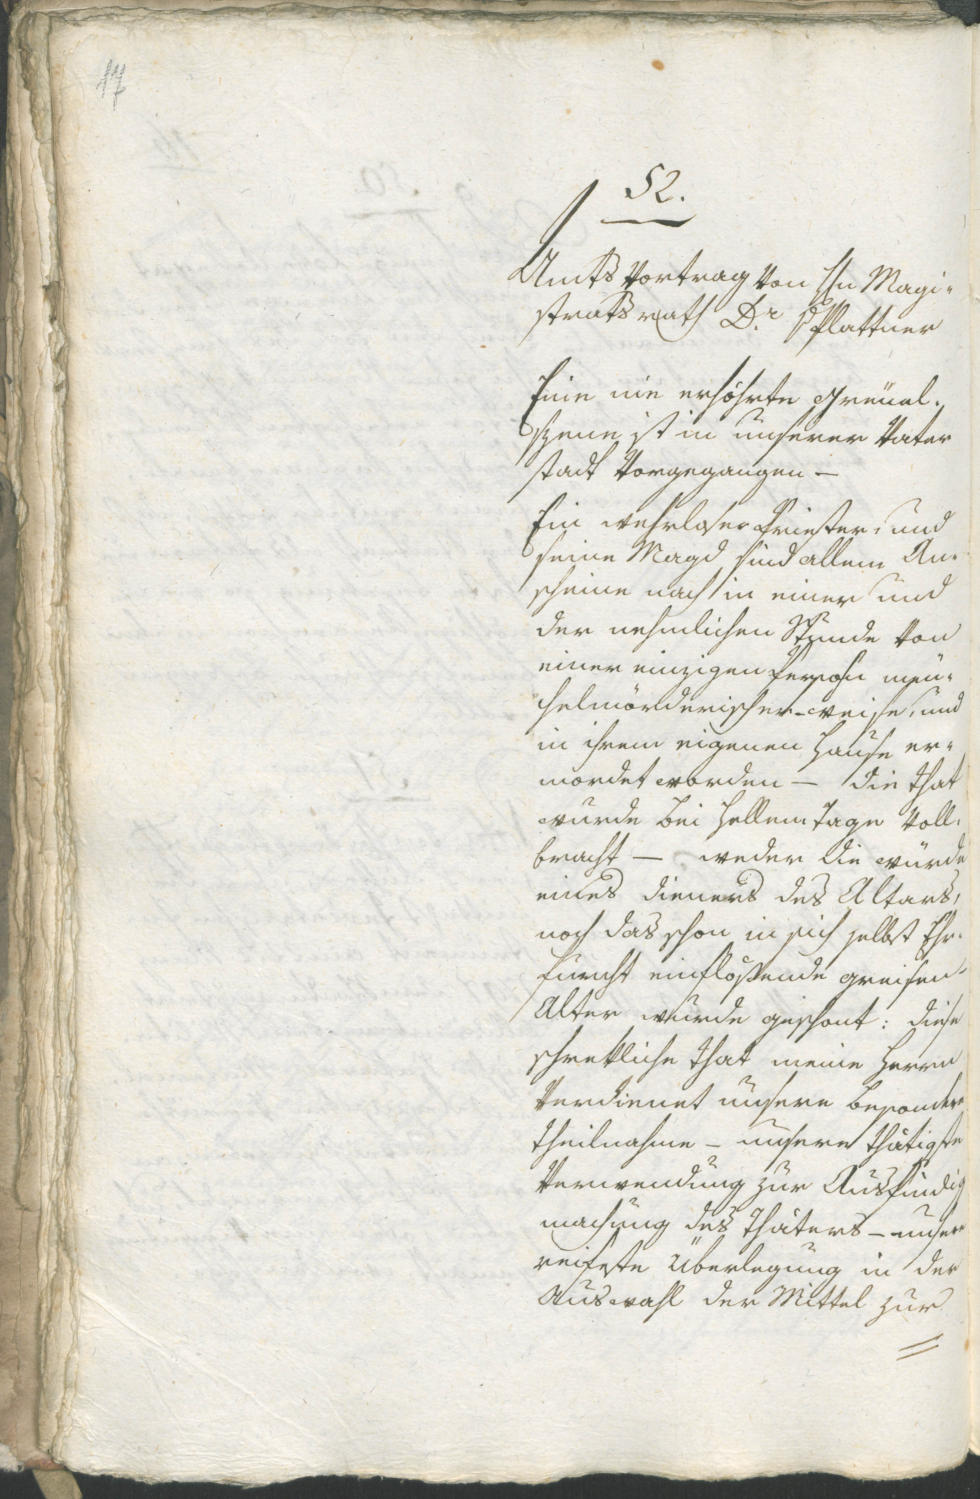 17
52.
Amts Vortrag von Hn Magi-
stratsrath Dr. Plattner
Eine nie erhöhrte Greüel-
szene ist in unserer Vater
stadt vorgegangen —
Ein wehrloser Priester, und
seine Magd sind allem An-
scheine nach in einer und
der nehmlichen Stunde von
einer einzigen Person meu-
chelmörderischer-weise, und
in ihrem eigenen Hause er-
mordet worden — die that
wurde bei hellem Tage voll-
bracht — weder die würde
eines dieners des Altars,
noch das schon in sich selbst Ehr-
furcht einflößende greisen-
Alter wurde geschont: diese
schrekliche that meine Herrn
verdienet unsere besondere
theilnahme — unsere thätigste
Verwendung zur Ausfündig
machung des thäters — unsere
reifeste Überlegung in der
Auswahl der Mittel zur